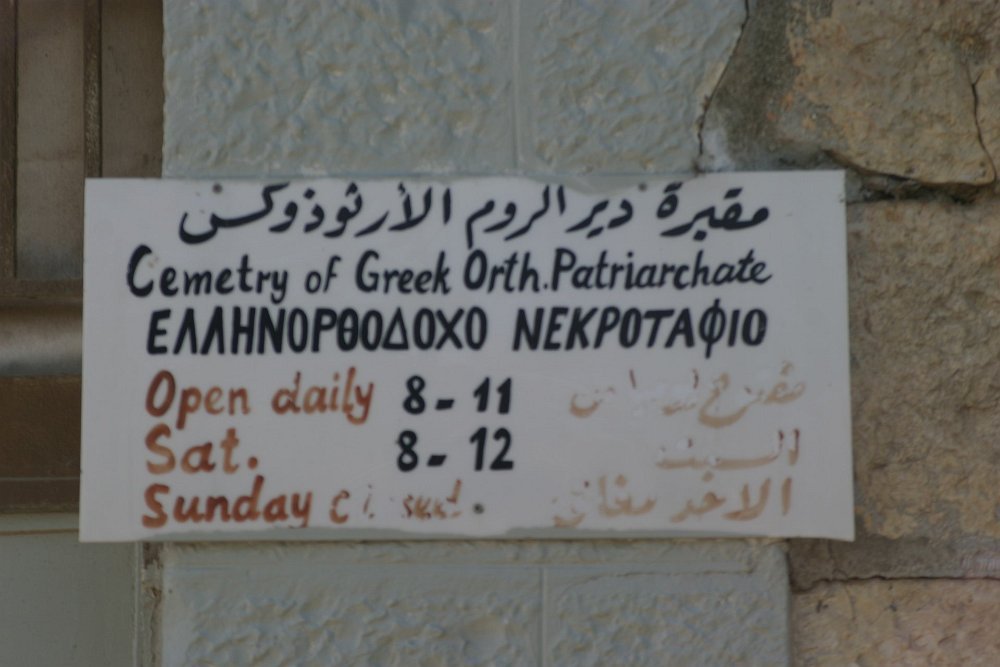 مقبرة دير الروم الأرثوذوكس
Cemetry of Greek Orth. Patriarchate
ΕΛΛΗΝΟΡΘΟΔΟΧΟ ΝΕΚΡΟΤΑΦΙΟ
Open daily 8 - 11
Sat. 8 - 12 السبت
Sunday closed. الاحد مغلق